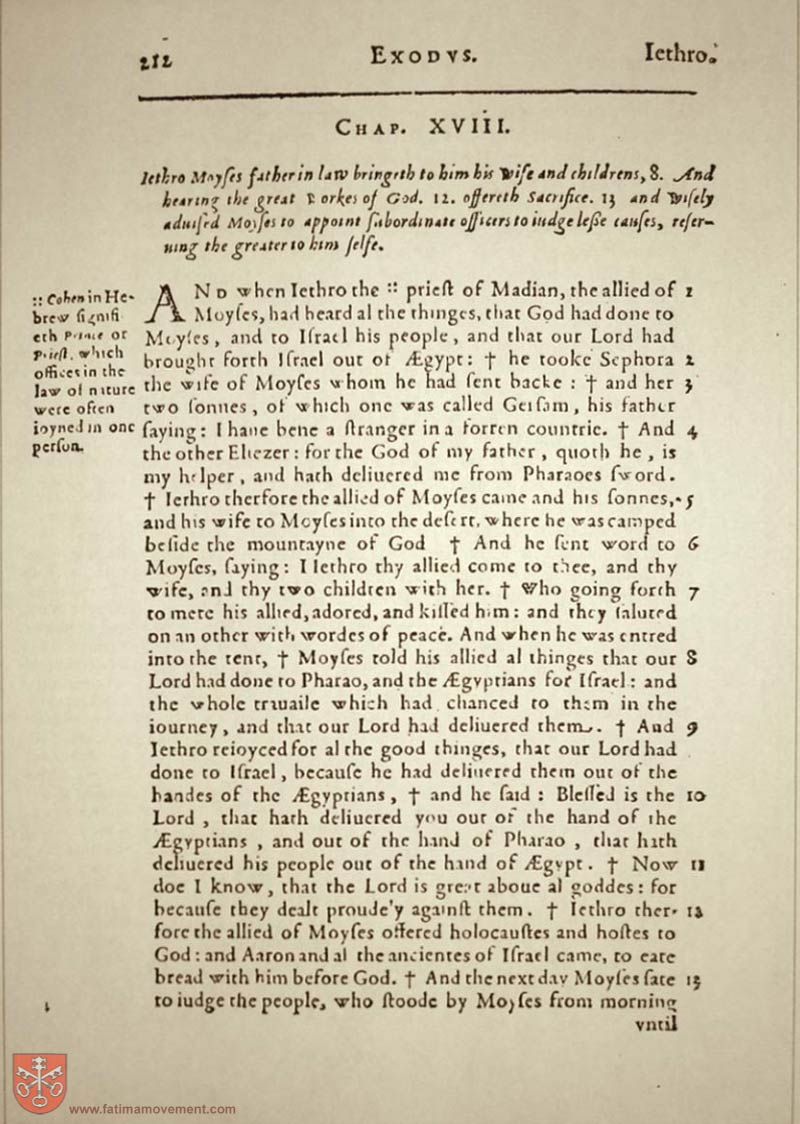 212 EXODVS. Iethro.
CHAP. XVIII.
Iethro Moyſes father in law bringeth to him his wife and childrens, 8. And
hearing the great workes of God. 12. offereth Sacrifice. 13 and wiſely
aduiſed Moyſes to appoint ſubordinate officers to iudge leſſe cauſes, reſer-
uing the greater to him ſelfe.
:: Cohen in He-
brew ſignifi
eth Prince or
Prieſt, which
offices in the
law of nature
were often
ioyned in one
perſon.
AND when Iethro the :: prieſt of Madian, the allied of 1
Moyſes, had heard al the thinges, that God had done to
Moyſes, and to Iſrael his people, and that our Lord had
brought forth Iſrael out of Ægypt: † he tooke Sephora 2
the wife of Moyſes whom he had ſent backe: † and her 3
two ſonnes, of which one was called Gerſam, his father
ſaying: I haue bene a ſtranger in a forren countrie. † And 4
the other Eliezer: for the God of my father, quoth he, is
my helper, and hath deliuered me from Pharaoes ſword.
† Iethro therfore the allied of Moyſes came and his ſonnes, 5
and his wife to Moyſes into the deſert, where he was camped
beſide the mountayne of God † And he ſent word to 6
Moyſes, ſaying: I Iethro thy allied come to thee, and thy
wife, and thy two children with her. † Who going forth 7
to mete his allied, adored, and kiſſed him: and they ſaluted
on an other with wordes of peace. And when he was entred
into the tent, † Moyſes told his allied al thinges that our 8
Lord had done to Pharao, and the Ægyptians for Iſrael: and
the whole trauaile which had chanced to them in the
iourney, and that our Lord had deliuered them. † And 9
Iethro reioyced for al the good thinges, that our Lord had
done to Iſrael, becauſe he had deliuered them out of the
handes of the Ægyptians, † and he ſaid: Bleſſed is the 10
Lord, that hath deliuered you out of the hand of the
Ægyptians, and out of the hand of Pharao, that hath
deliuered his people out of the hand of Ægypt. † Now 11
doe I know, that the Lord is great aboue al goddes: for
becauſe they dealt proudely againſt them. † Iethro ther- 12
fore the allied of Moyſes offered holocauſtes and hoſtes to
God: and Aaron and al the ancientes of Iſrael came, to eate
bread with him before God. † And the next day Moyſes ſate 13
to iudge the people, who ſtoode by Moyſes from morning
vntil
www.fatimamovement.com